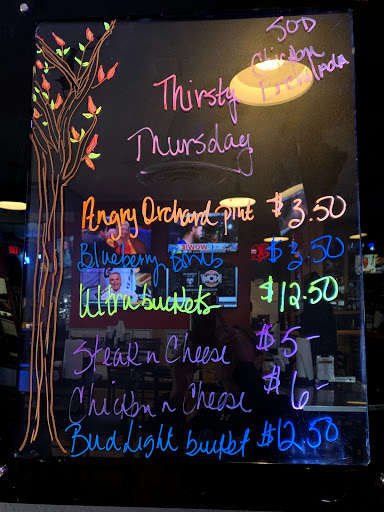 SOD
Chicken
Enchilada
Thirsty
Thursday
Angry Orchard pint $3.50
Blueberry Bombs $3.50
Ultra buckets $12.50
Steak n Cheese $5-
Chicken n Cheese $6-
Bud Light bucket $12.50